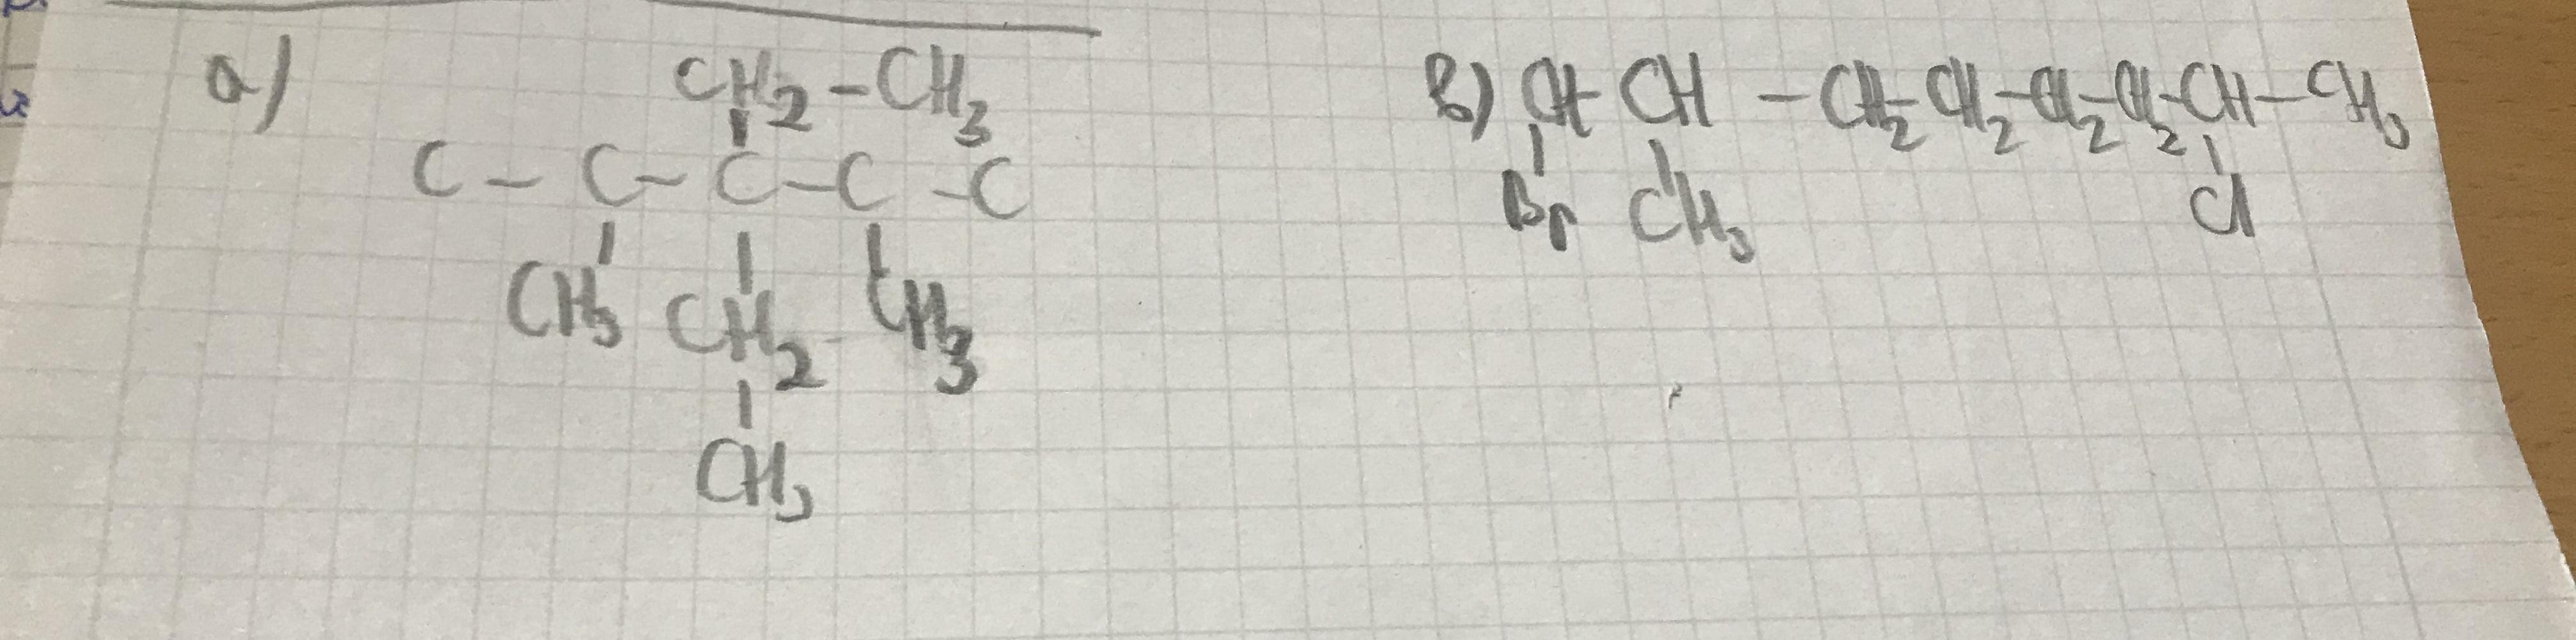 а) CH2-CH3
C - C - C - C - C
CH3 CH2 CH3
CH3
в) CH-CH-CH2-CH2-CH2-CH2-CH-CH3
Br CH3 Cl